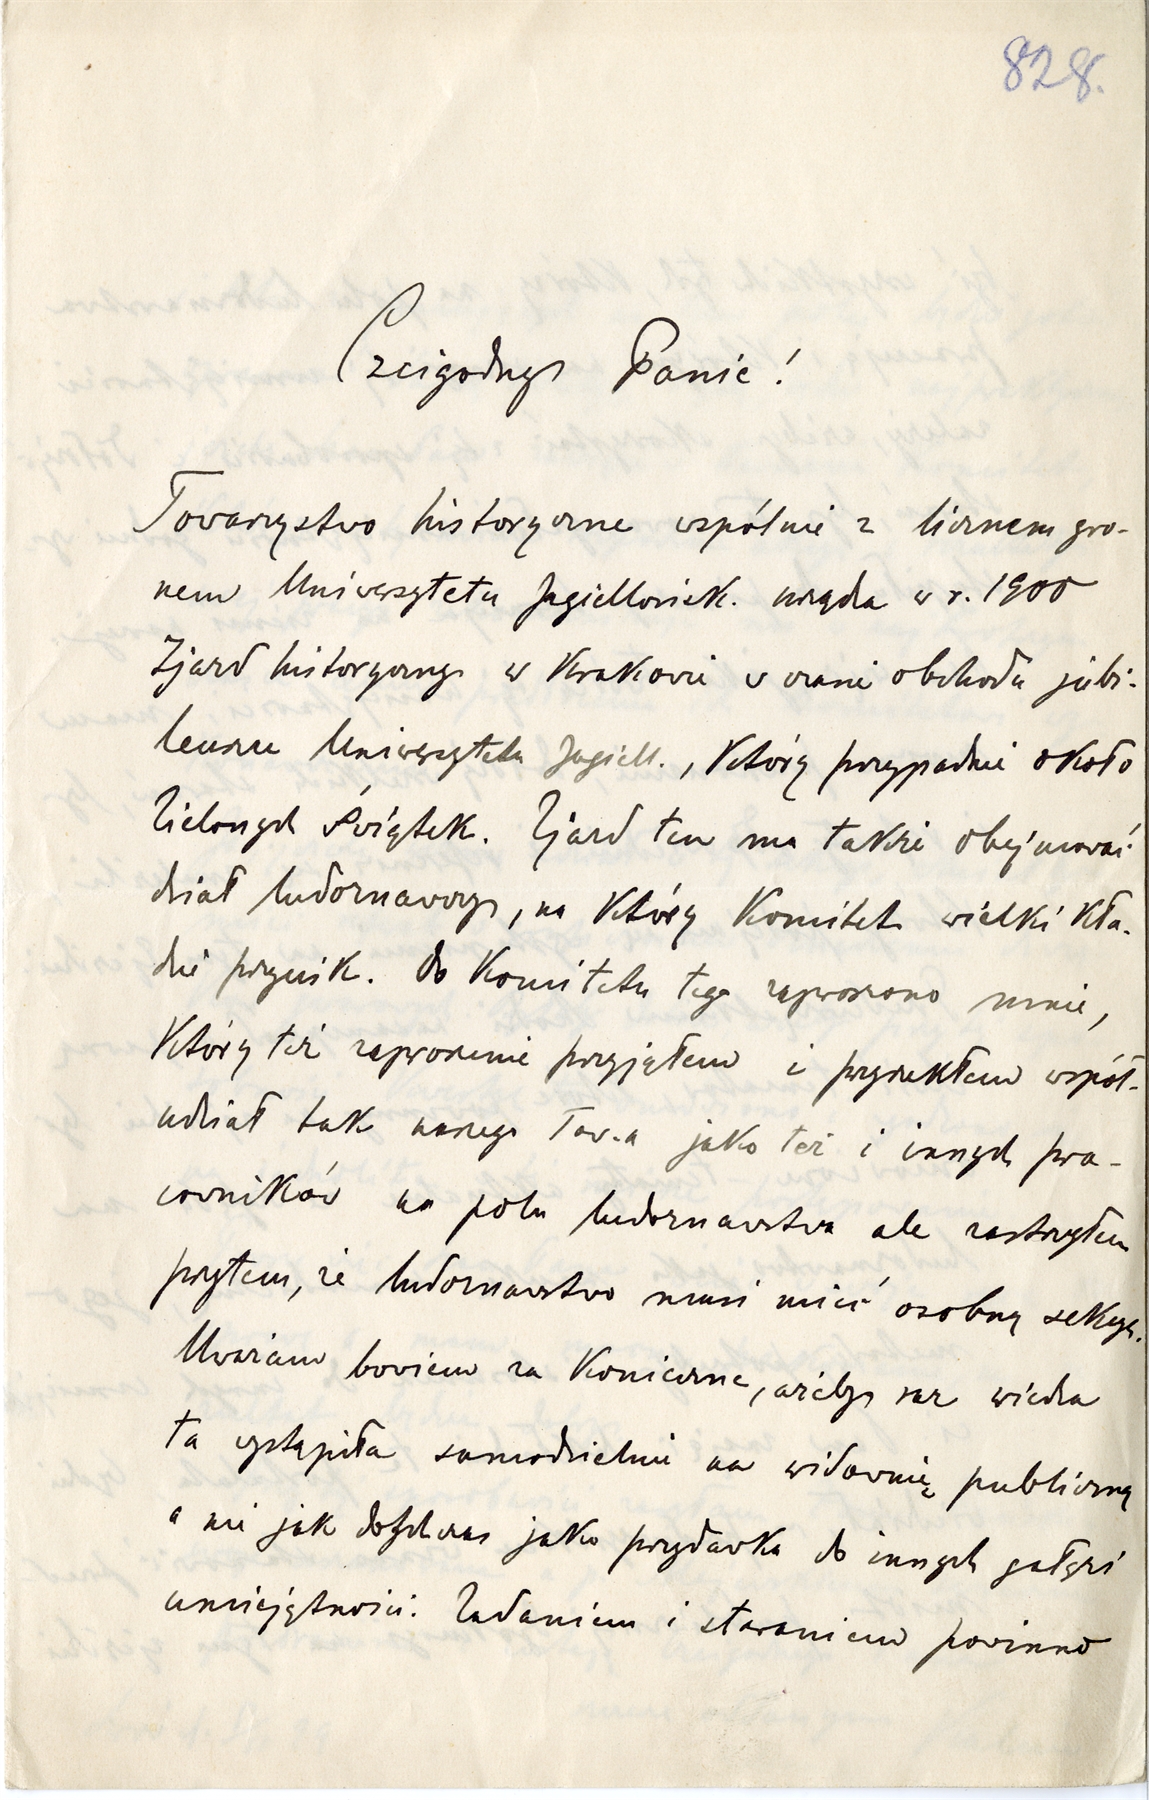 828.
Czcigodny Panie!
Towarzystwo historyczne wspólnie z licznem gro-
nem Uniwersytetu Jagiellońsk. urządza w r. 1900
Zjazd historyczny w Krakowie w czasie obchodu jubi-
leuszu Uniwersytetu Jagiell., który przypadnie około
Zielonych Świątek. Zjazd ten ma także obejmować
dział ludoznawczy, na który Komitet wielki kła-
dzie przycisk. Do Komitetu tego zaproszono mnie,
który też zaproszenie przyjąłem i przyrzekłem współ-
udział tak naszego Tow.a jako też i innych pra-
cowników na polu ludoznawstwa ale zastrzegłem
przytem, że ludoznawstwo musi mieć osobną sekcyę.
Uważam bowiem za konieczne, ażeby raz wiedza
ta wystąpiła samodzielnie na widownię publiczną
a nie jak dotychczas jako przydawka do innych gałęzi
umiejętności. Zadaniem i staraniem powinno